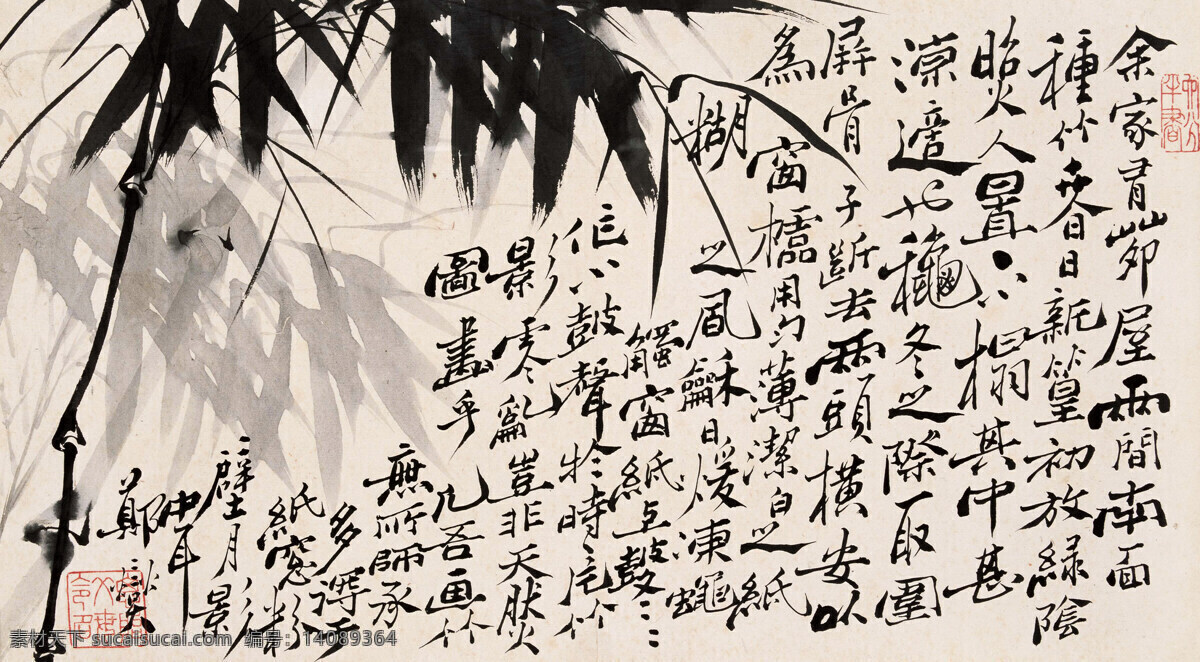 余家有茆屋兩間南面
種竹夏日新篁初放綠陰
照人置小榻其中甚
涼適也龝冬之際取圍
屏骨子斷去兩頭橫安以
為窗櫺用勻薄潔白之紙
糊之風龢日煖凍蠅
觸窗紙上鼕鼕
作小鼓聲於時一片竹
影零亂豈非天然
圖畫乎凡吾画竹
無所師承
多得于
紙窓粉
壁月影
中耳
鄭燮
素材天下 sucaisucai.com 编号：14089364